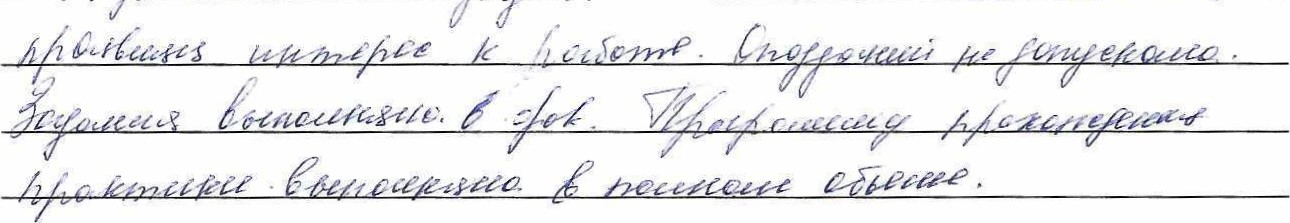 проявила интерес к работе. Опозданий не допускала.
Задания выполняла в срок. Программу прохождения
практики выполнила в полном объеме.